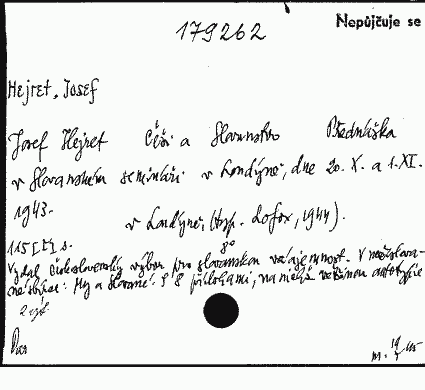 179262
Nepůjčuje se
Hejret, Josef
Josef Hejret Češi a Slovanstvo Přednáška
v Slovanském semináři v Londýně, dne 20. X. a 1. XI.
1943.
v Londýně, (Lofox, 1944).
115 [I] s. 8°
Vydal Československý výbor pro slovanskou vzájemnost. V
: My a Slované. S 8 přílohami, na většinou
2 výt.